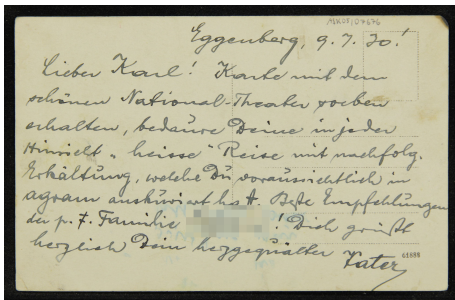 MK08/07676
Eggenberg, 9.7.30!
Lieber Karl! Karte mit dem
schönen National-Theater soeben
erhalten, bedaure Deine in jeder
Hinsicht „heisse" Reise mit nachfolg.
Erkältung, welche Du voraussichtlich in
Agram auskuriert hast. Beste Empfehlungen
der p. t. Familie ! Dich grüßt
herzlich Dein herzgequälter Vater
61886